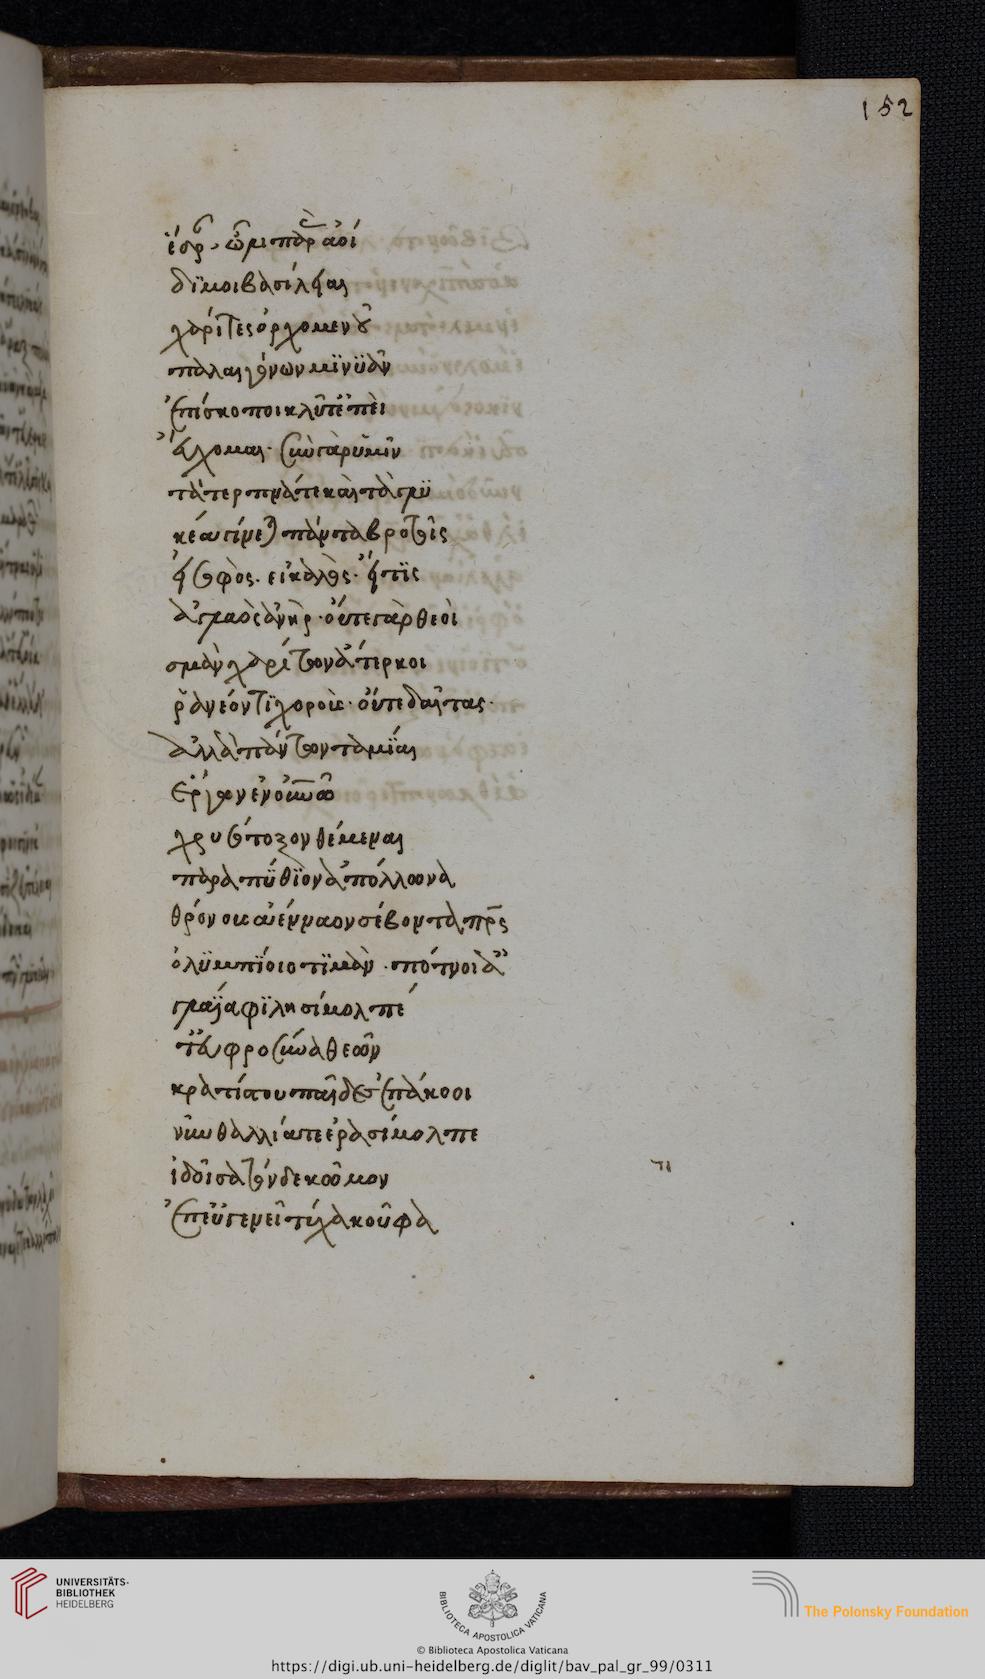 152
ἔδρ. ὦ λιπαραὶ ἀοί
διμοι βασίλειαι
χάριτες ὀρχομενοῦ
παλαιγόνων μινυᾶν
ἐπίσκοποι κλῦτ' ἐπεὶ
εὔχομαι. σὺν γὰρ ὑμῖν
τὰ τερπνά τε καὶ τὰ γλυ
κέα γίνεται πάντα βροτοῖς
εἰ σοφὸς. εἰ καλὸς. εἴ τις
ἀγλαὸς ἀνὴρ. οὔτε γὰρ θεοὶ
σεμνᾶν χαρίτων ἄτερ κοι
ρανέοντι χοροὺς. οὔτε δαῖτας.
ἀλλὰ πάντων ταμίαι
ἔργων ἐν οὐρανῷ
χρυσότοξον θέμεναι
παρὰ πύθιον ἀπόλλωνα
θρόνους ἀέναον σέβοντι πρς
ὀλυμπίοιο τιμάν. πότνι' ἀ
γλαΐα φιλησίμολπέ
τ' εὐφροσύνα θεῶν
κρατίστου παῖδες ἐπάκοοι
νῦν θαλία τε ἐρασίμολπε
ἰδοῖσα τόνδε κῶμον
ἐπ' εὐμενεῖ τύχᾳ κοῦφα
UNIVERSITÄTS-
BIBLIOTHEK
HEIDELBERG
BIBLIOTECA APOSTOLICA VATICANA
The Polonsky Foundation
© Biblioteca Apostolica Vaticana
https://digi.ub.uni-heidelberg.de/diglit/bav_pal_gr_99/0311